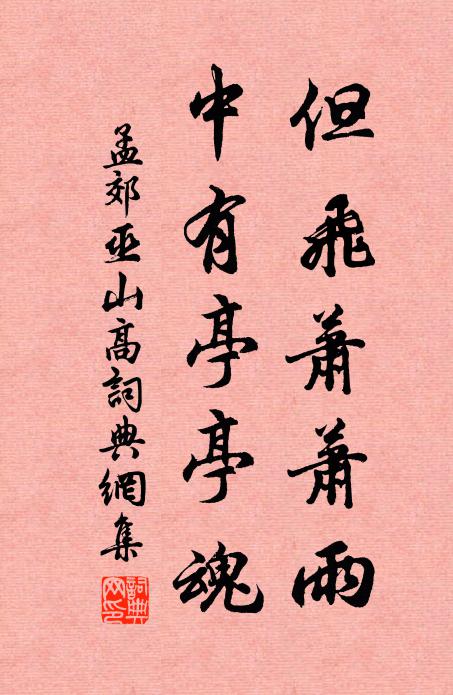 但飛蕭蕭雨
中有亭亭魂
孟郊巫山高詞典網集
詞典網印